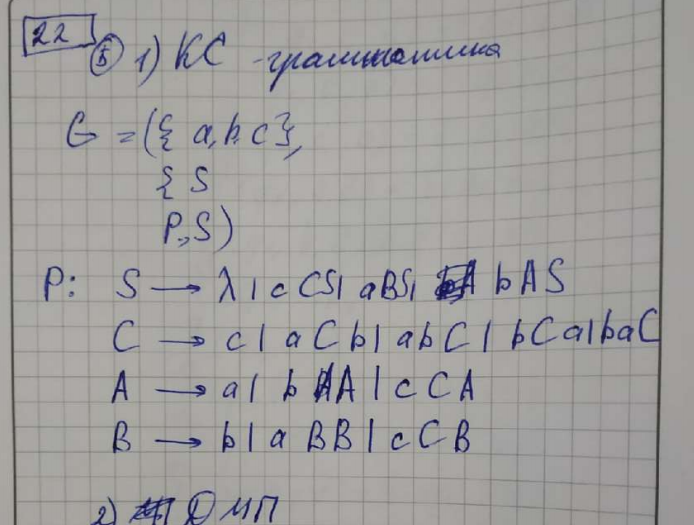 22
Б 1) КС - грамматика
G = ({ a, b, c },
{ S
P, S)
P: S → λ | cCS | aBS | bAS
C → c | aCb | abC | bCa | baC
A → a | bAA | cCA
B → b | aBB | cCB
2) ДМП